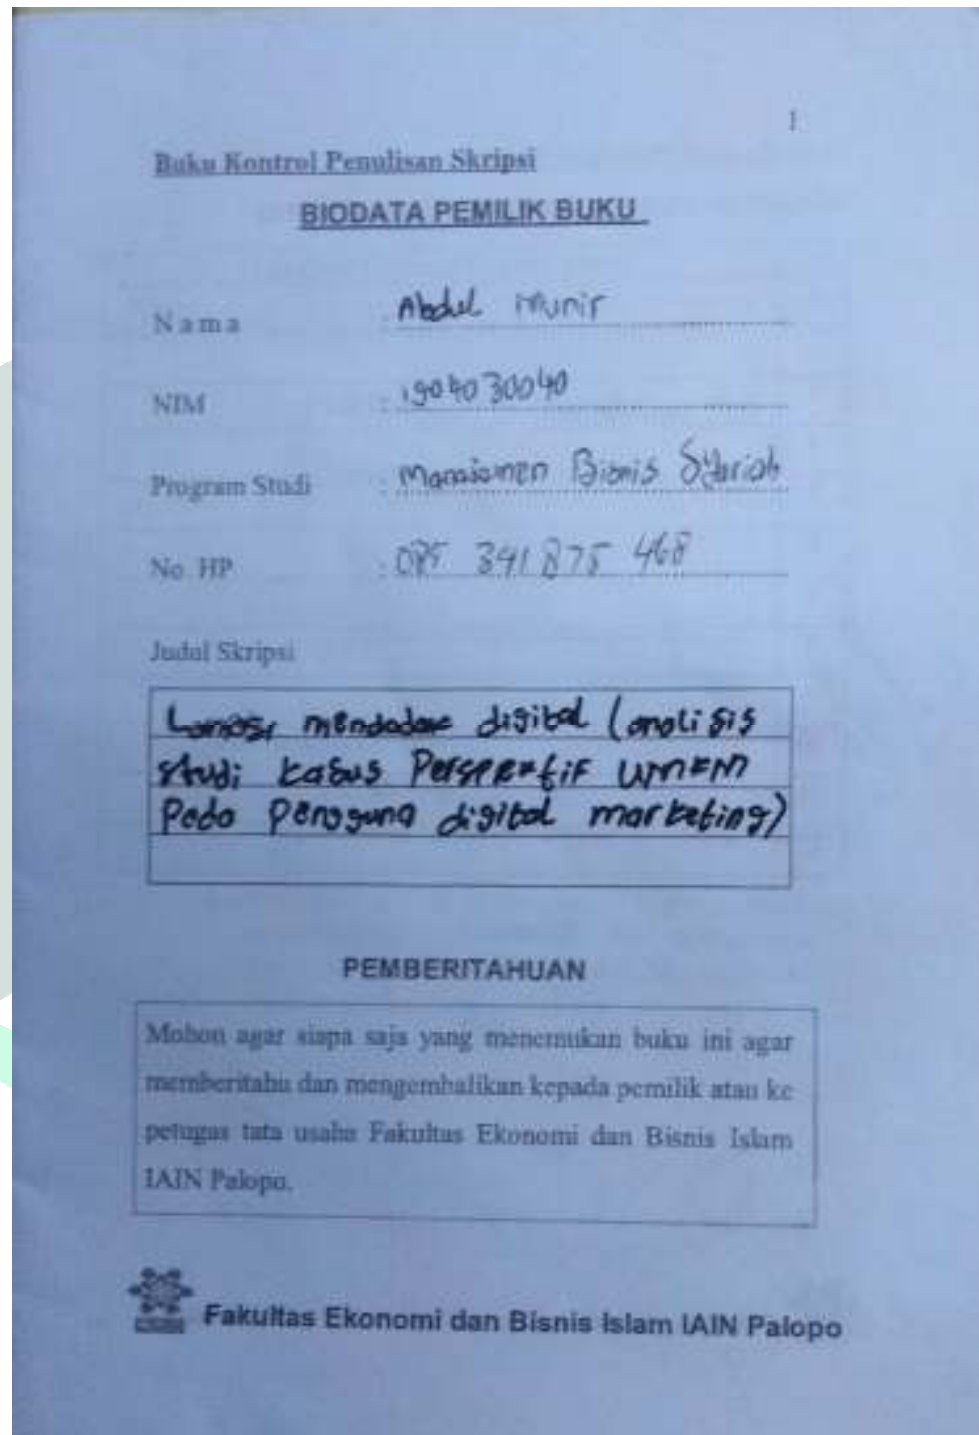 1
Buku Kontrol Penulisan Skripsi
BIODATA PEMILIK BUKU
Nama : Abdul Munir
NIM : 1904030040
Program Studi : Manajemen Bisnis Syariah
No. HP : 085 341 875 468
Judul Skripsi
digital (analisis
studi kasus Perspektif UMKM
Pada Pengguna digital marketing)
PEMBERITAHUAN
Mohon agar siapa saja yang menemukan buku ini agar
memberitahu dan mengembalikan kepada pemilik atau ke
petugas tata usaha Fakultas Ekonomi dan Bisnis Islam
IAIN Palopo.
Fakultas Ekonomi dan Bisnis Islam IAIN Palopo